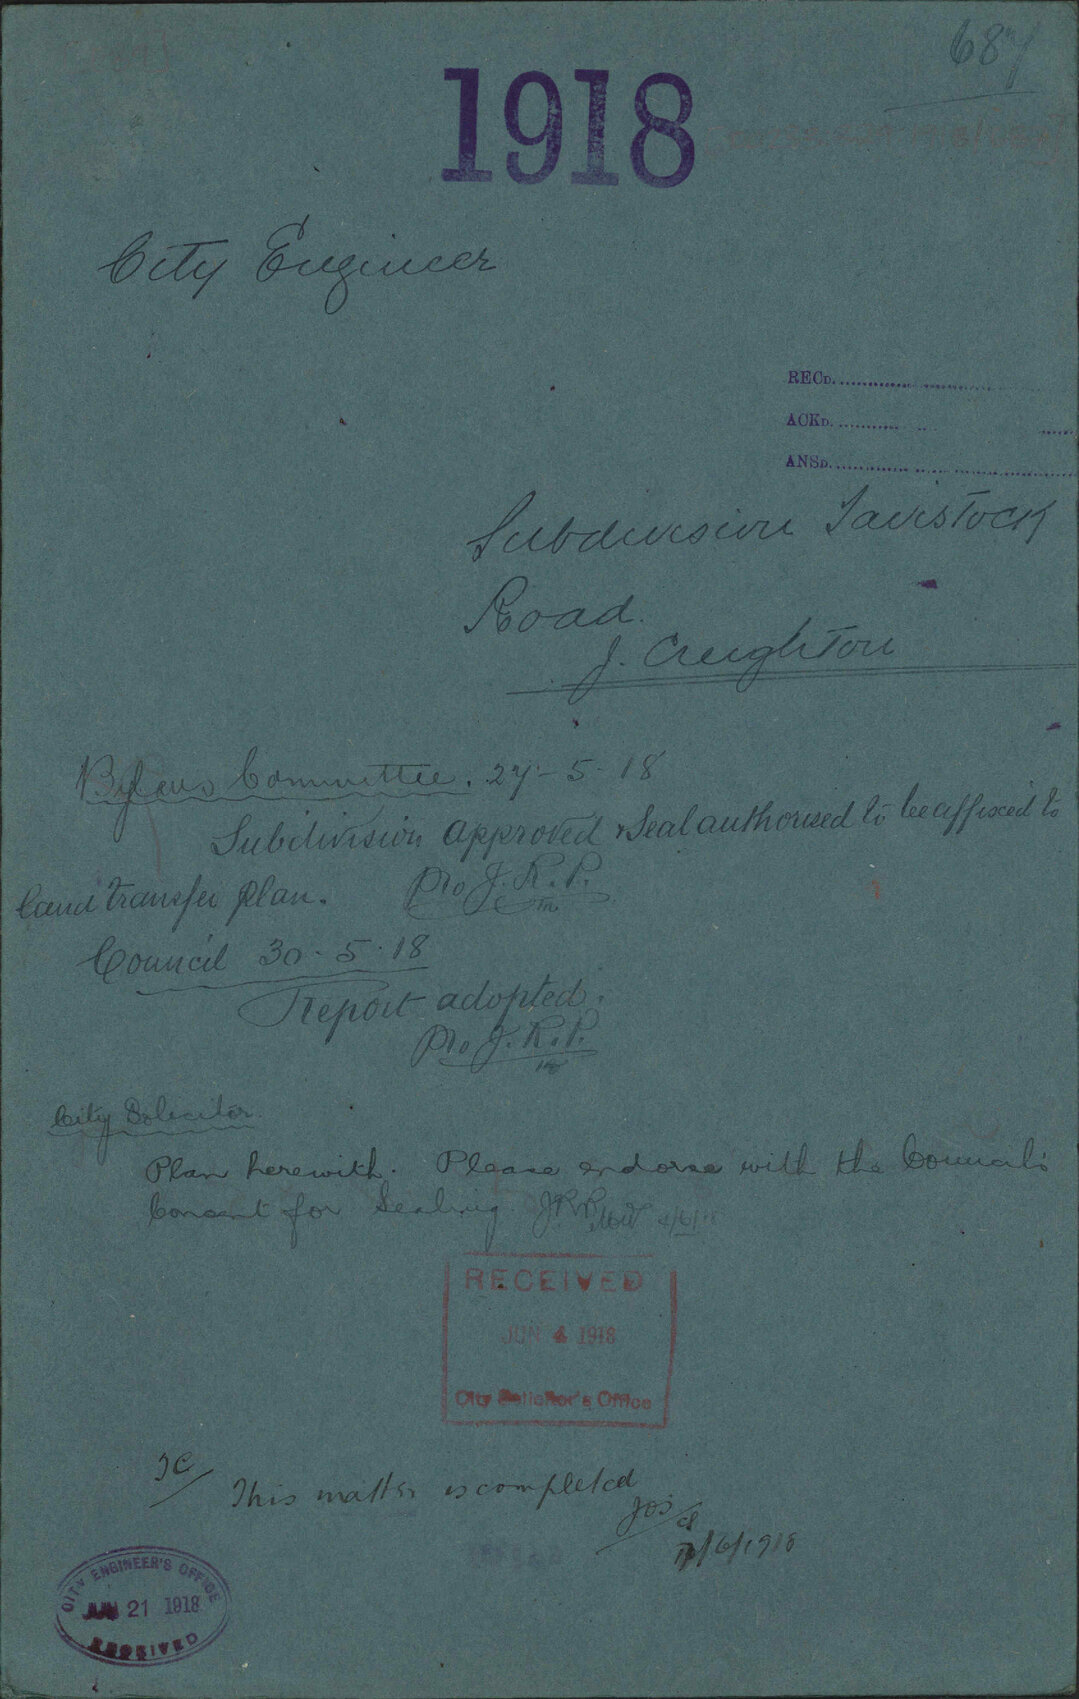 687
1918
City Engineer
RECD.
ACKD.
ANSD.
Subdivision Tavistock
Road.
J. Creighton
Bylaws Committee. 27-5-18
Subdivision approved & Seal authorised to be affixed to
land transfer plan. pro J.R.P.
Council 30-5-18
Report adopted.
pro J.R.P.
City Solicitor
Plan herewith. Please endorse with the Council's
Consent for Sealing. J.R.P.
RECEIVED
JUN 4 1918
City Solicitor's Office
This matter is completed
/6/1918
CITY ENGINEER'S OFFICE
JUN 21 1918
RECEIVED